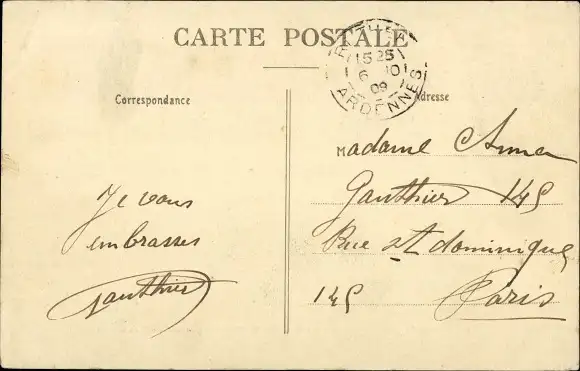 CARTE POSTALE
15 25
6 10
09
ARDENNES
Correspondance
Adresse
Madame Anna
Gauthier 145
Rue st dominique
145 Paris
Je vous
embrasses
Gauthier